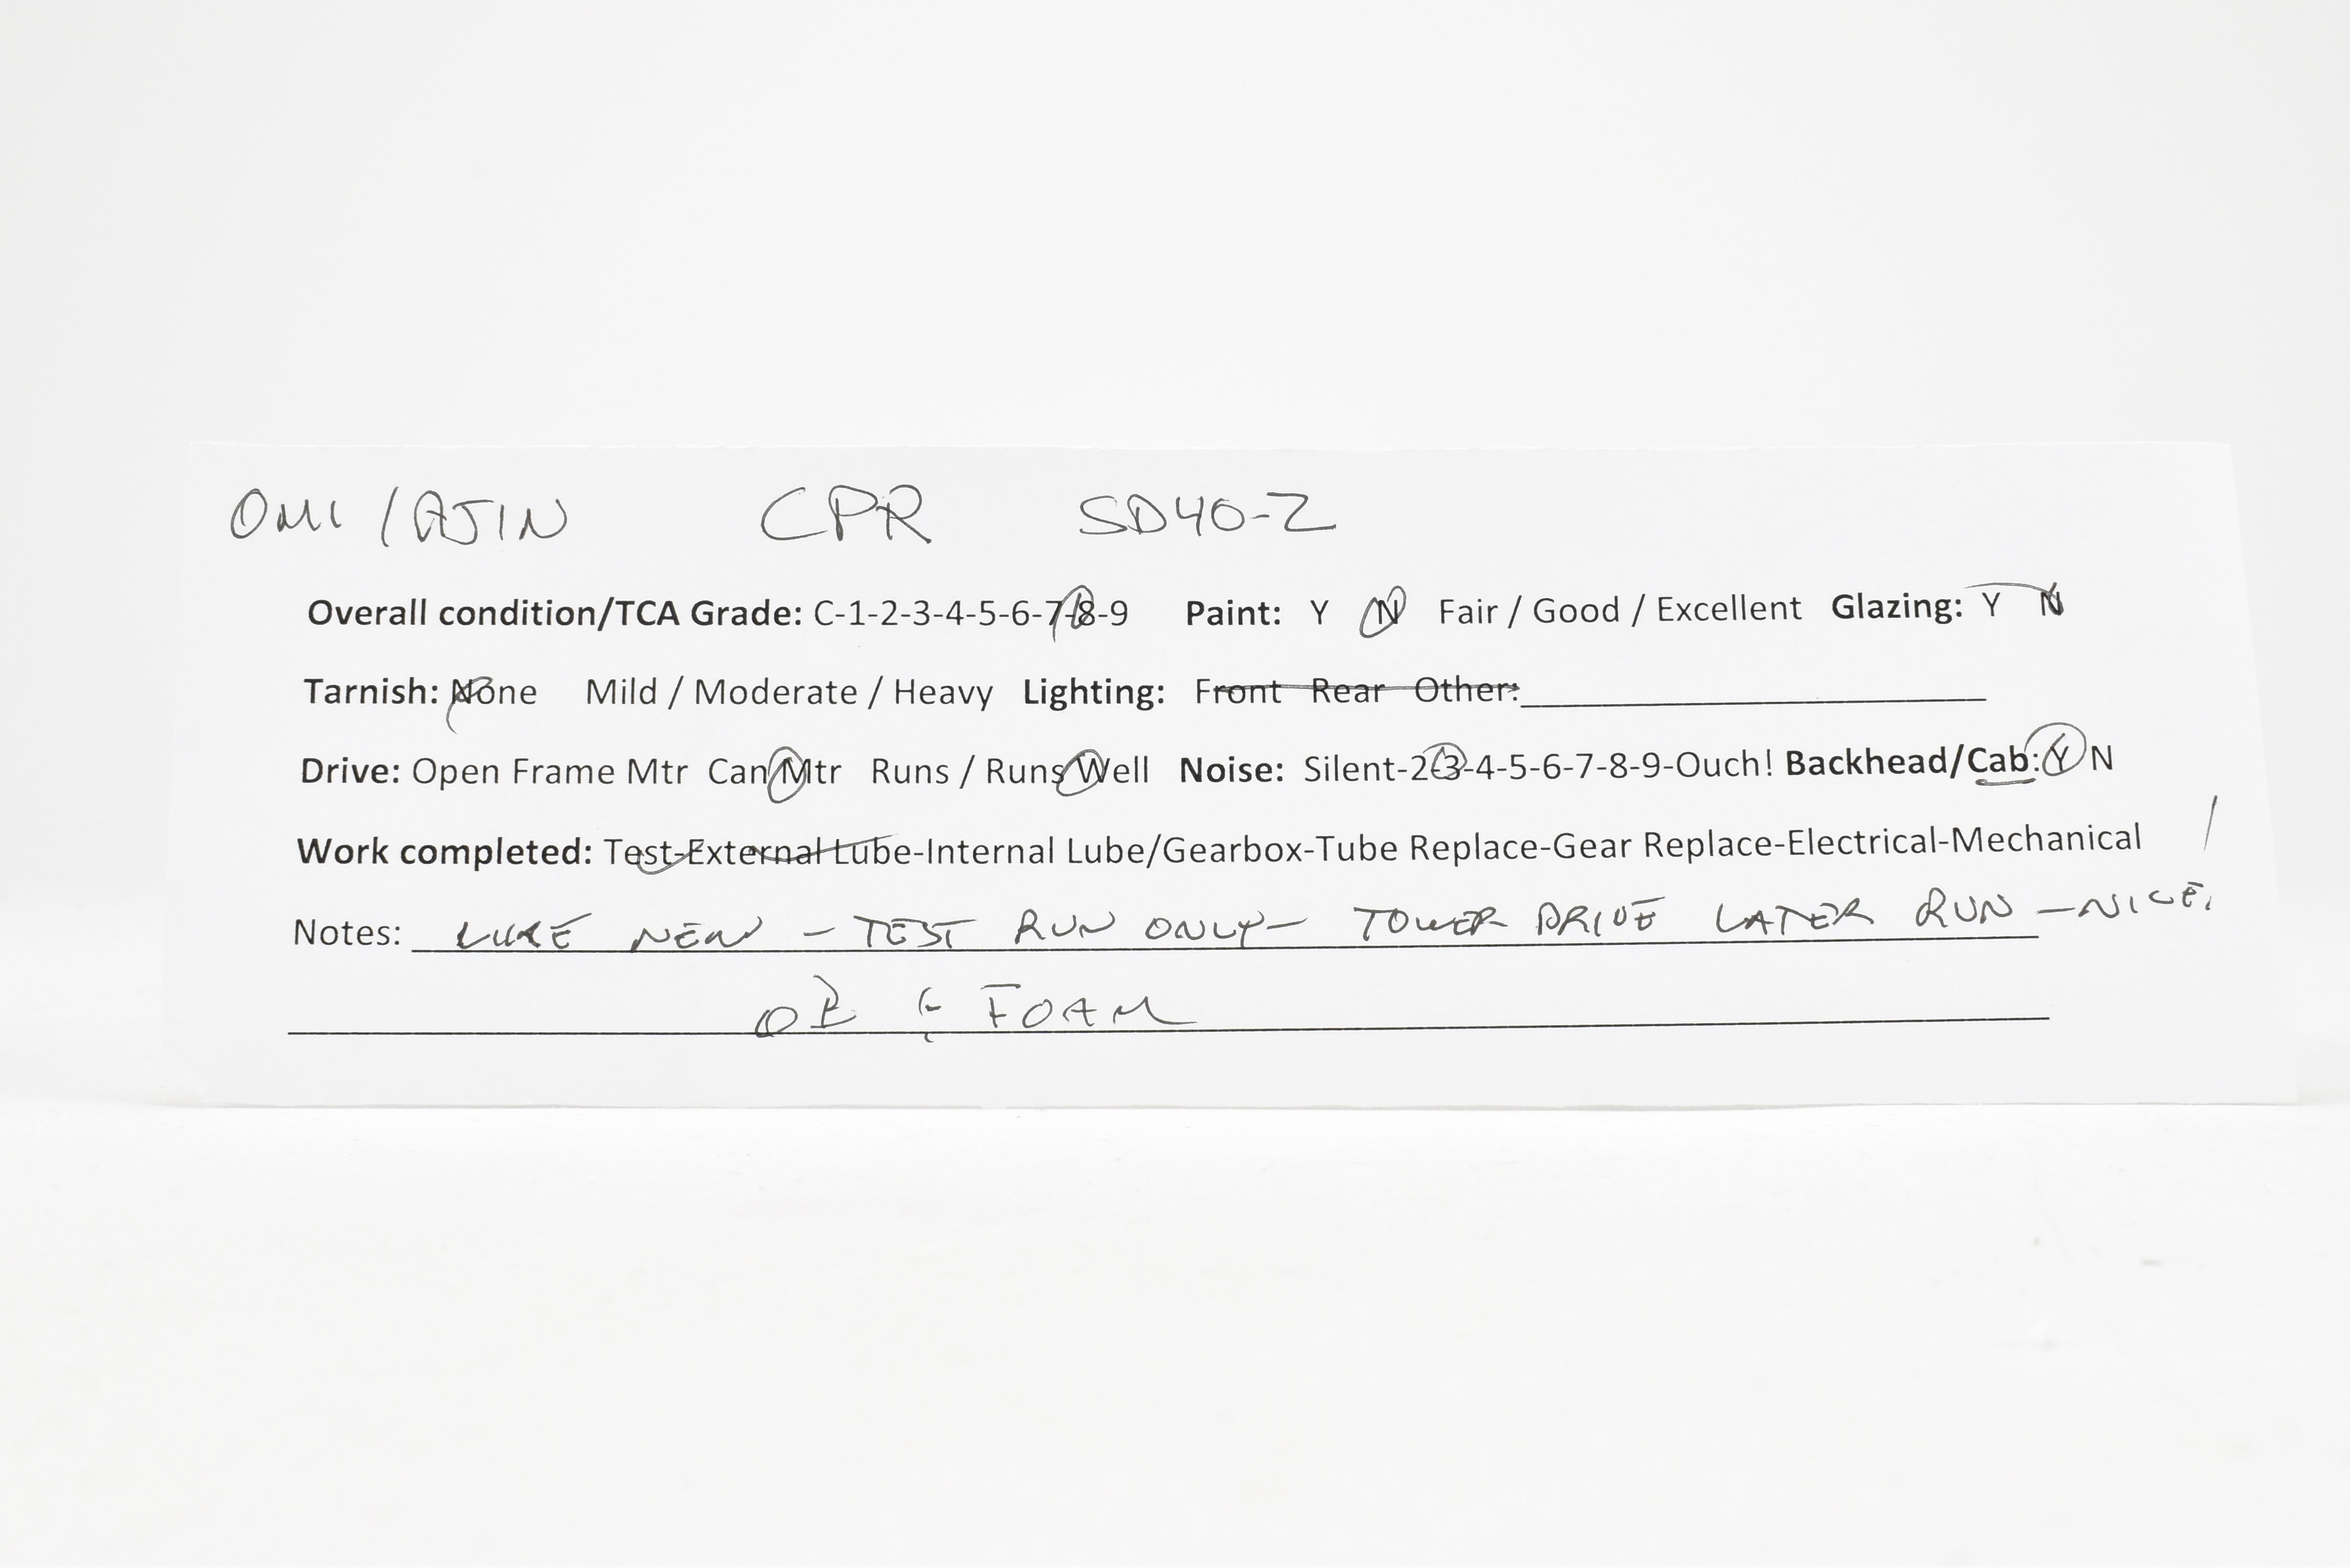 OMI / AJIN CPR SD40-2
Overall condition/TCA Grade: C-1-2-3-4-5-6-7-8-9 Paint: Y N Fair / Good / Excellent Glazing: Y N
Tarnish: None Mild / Moderate / Heavy Lighting: Front Rear Other:
Drive: Open Frame Mtr Can Mtr Runs / Runs Well Noise: Silent-2-3-4-5-6-7-8-9-Ouch! Backhead/Cab: Y N
Work completed: Test-External Lube-Internal Lube/Gearbox-Tube Replace-Gear Replace-Electrical-Mechanical
Notes: LIKE NEW - TEST RUN ONLY - TOWER DRIVE LATER RUN - NICE!
FOAM